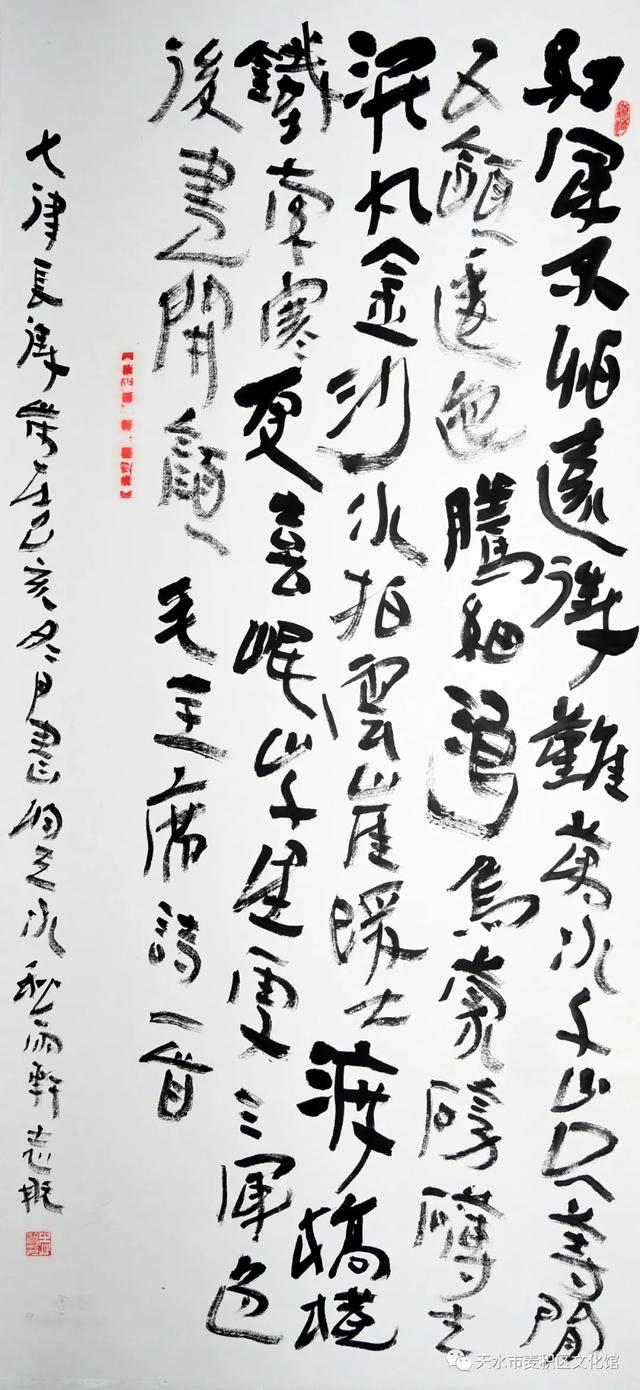 紅軍不怕遠征難萬水千山只等閒
五嶺逶迤騰細浪烏蒙磅礴走
泥丸金沙水拍雲崖暖大渡橋橫
鐵索寒更喜岷山千里雪三軍過
後盡開顏 毛主席詩一首
七律長征歲在己亥冬月書於天水秋雨軒志
天水市麦积区文化馆